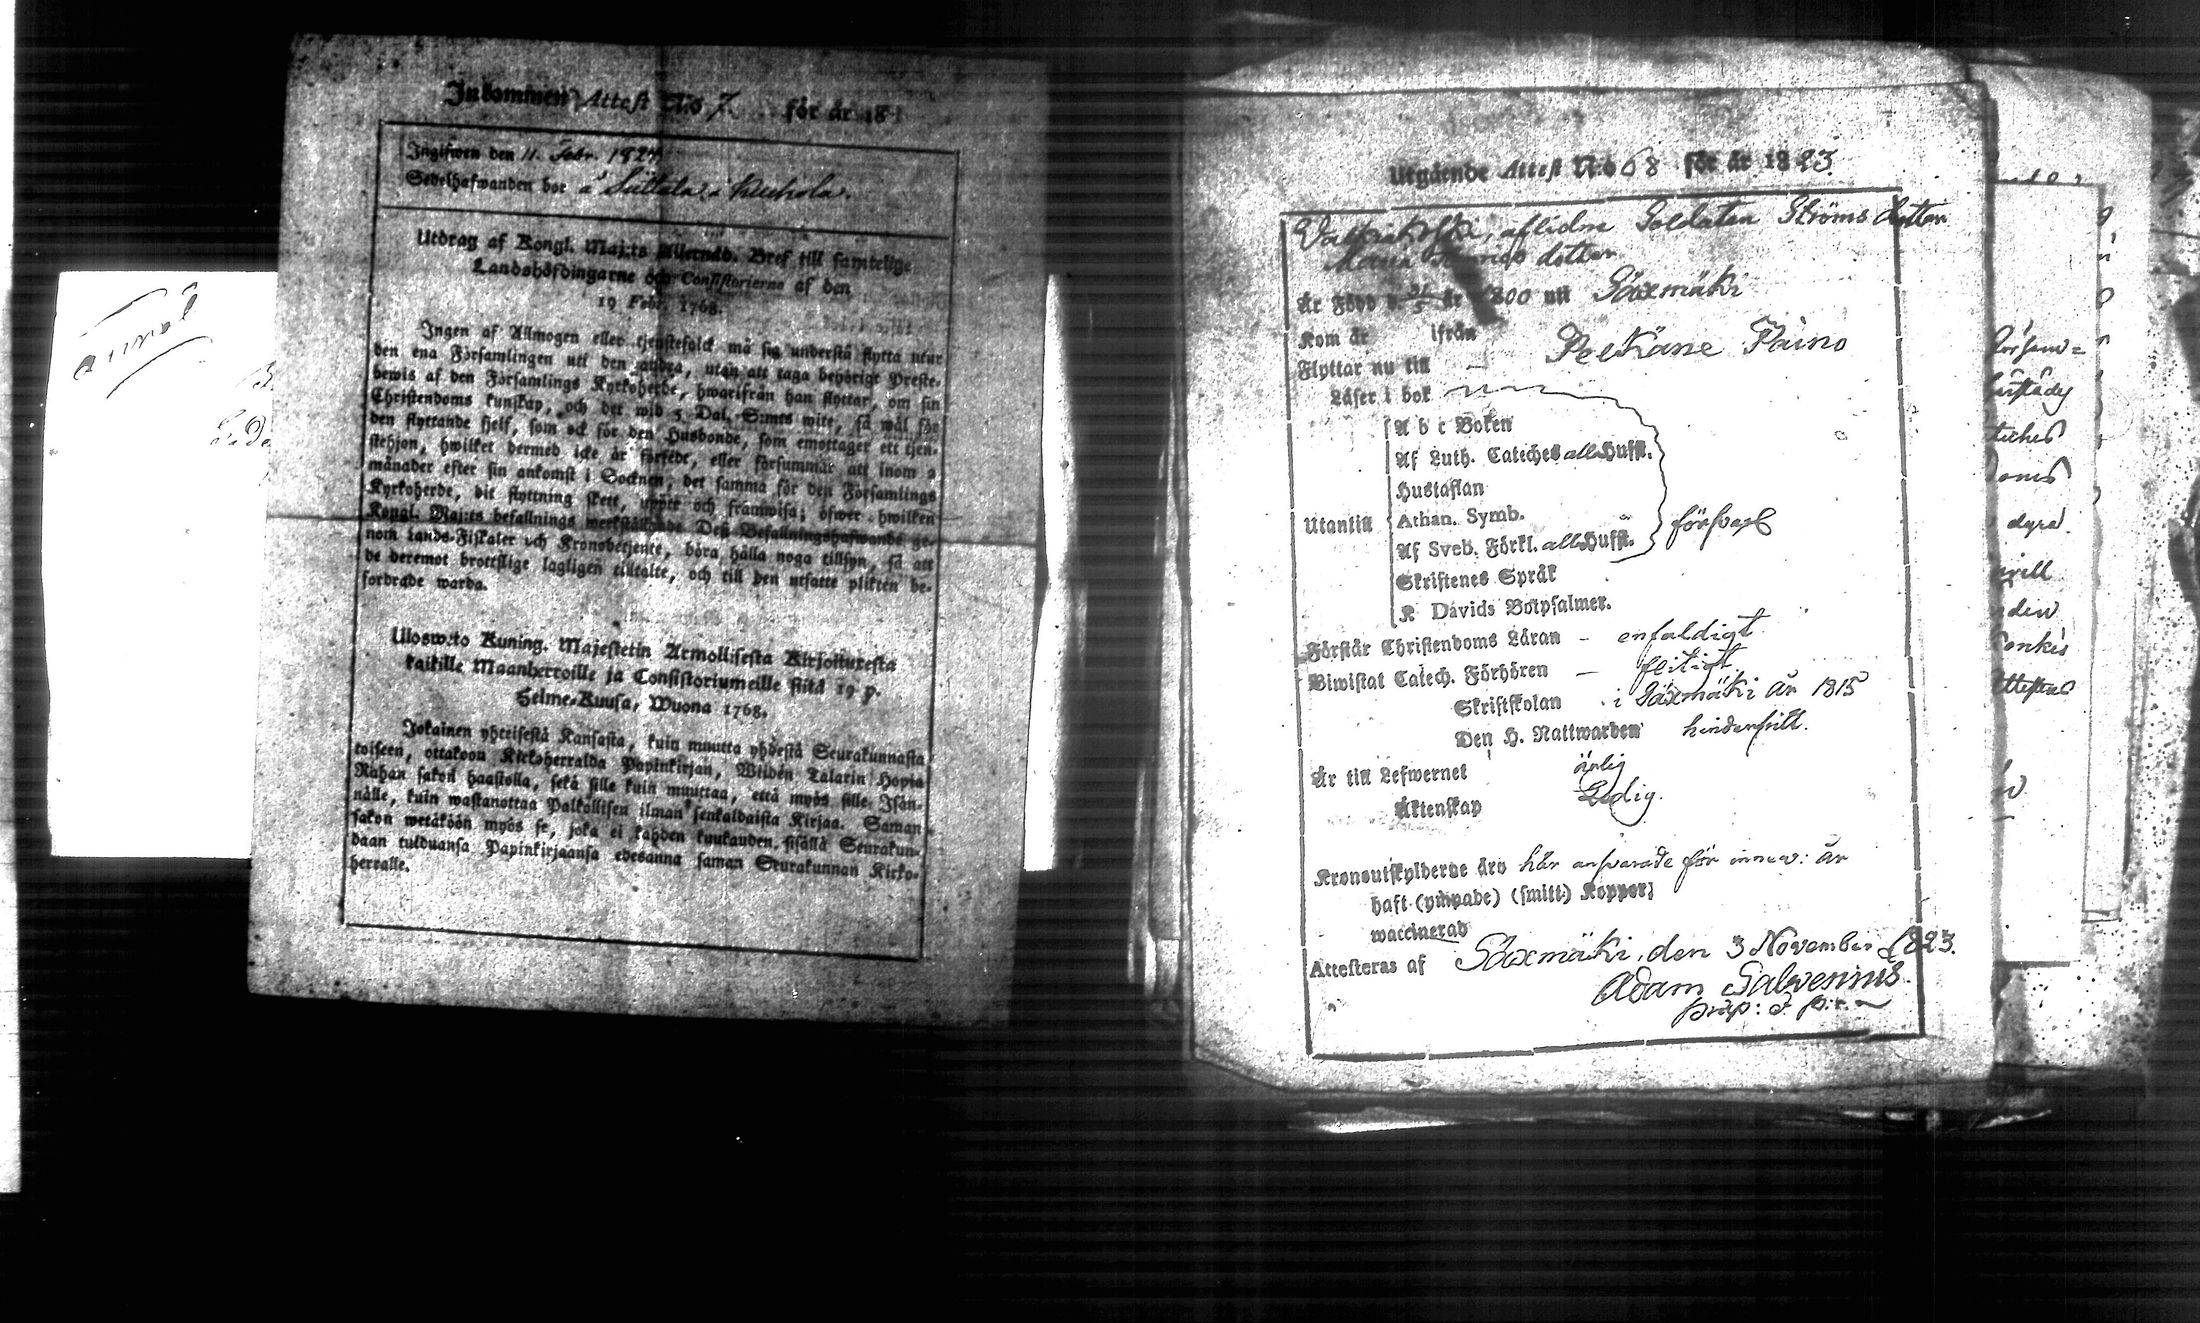 Inkommen Attest N:o 7 för år 18
Ingifwen den 11. Febr. 1824
Sedelhafwanden bor å
Utdrag af Kongl. Maj:ts Allernåd. Bref till samtelige
Landshöfdingarne och Consistorierne af den
19 Febr. 1768.
Ingen af Allmogen eller tjenstefolck må sig understå flytta utur
den ena Församlingen uti den andra, utan att taga behörigt Preste-
bewis af den Församlings Kyrkoherde, hwarifrån han flyttar, om sin
Christendoms kunskap, och det wid 5 Dal. S:mts wite, så wäl för
den flyttande sjelf, som ock för den Husbonde, som emottager ett tjen-
stehjon, hwilket dermed icke är försedt, eller försummar att inom 2
månader efter sin ankomst i Socknen, det samma för den Församlings
Kyrkoherde, dit flyttning skett, uppte och framwisa; öfwer hwilken
Kongl. Maj:ts befallnings werkställande Deß Befallningshafwande ge-
nom Lands-Fiskaler och Kronobetjente, böra hålla noga tillsyn, så att
de deremot brottslige lagligen tilltalte, och till den utsatte plikten be-
fordrade warda.
Ulosw:to Kuning. Majestetin Armollisesta Kirjoituxesta
kaikille Maanherroille ja Consistoriumeille siitä 19 p.
Helme-Kuusa, Wuona 1768.
Jokainen yhteisestä Kansasta, kuin muutta yhdestä Seurakunnasta
toiseen, ottakoon Kirkoherralda Papinkirjan, Wiiden Talarin Hopia
Rahan sakon haastolla, sekä sille kuin muuttaa, että myös sille Isän-
nälle, kuin wastanottaa Palkollisen ilman senkaldaista Kirjaa. Saman
sakon wetäköön myös se, joka ei kahden kuukauden sisällä Seurakun-
daan tulduansa Papinkirjaansa edesanna saman Seurakunnan Kirko-
herralle.
Utgående Attest N:o 68 för år 1823.
aflidne Soldaten Ströms dotter
Maria dotter
Är Född d. år 1800 uti Säxmäki
Kom år ifrån
Flyttar nu till – Pelkäne Påino
Läser i bok
A b c Boken
Af Luth. Cateches alla Hufst.
Hustaflan
Utantill Athan. Symb. försvarl
Af Sveb. Förkl. alla Hufst.
Skriftenes Språk
K. Davids Botpsalmer.
Förstår Christendoms Läran – enfaldigt
Biwistat Catech. Förhören – flitigt
Skriftskolan i Säxmäki år 1815
Den H. Nattwarden hinderfritt.
Är till Lefwernet ärlig
Äktenskap Ledig.
Kronoutskylderne äro här ansvarade för innew: år
haft (ympade) (smitt.) Koppor;
waccinerad
Attesteras af Säxmäki, den 3 November 1823.
Adam Salvenius.